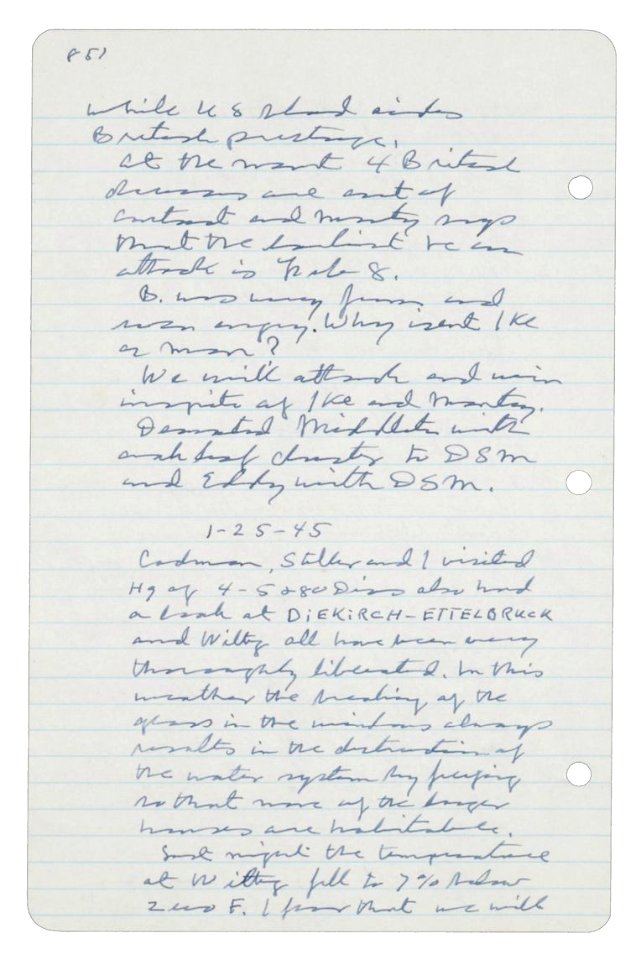 851
while U S blood aides
British prestige.
At the moment 4 British
divisions are out of
contact and Monty says
that the earliest he can
attack is Feb 8.
B. was very firm and
even angry. Why isent Ike
a man?
We will attack and win
inspite of Ike and Monty.
Decorated Middleton with
oak leaf cluster to DSM
and Eddy with DSM.
1-25-45
Codman, Stiller and I visited
Hq of 4-5 & 80 Divs also had
a look at DiEKiRCH-ETTELBRUCK
and Wiltz all have been very
thoroughly liberated. In this
weather the breaking of the
glass in the windows always
results in the distruction of
the water system by freezing
so that none of the larger
houses are habitable.
Last night the temperature
at Wiltz fell to 7° below
zero F. I fear that we will